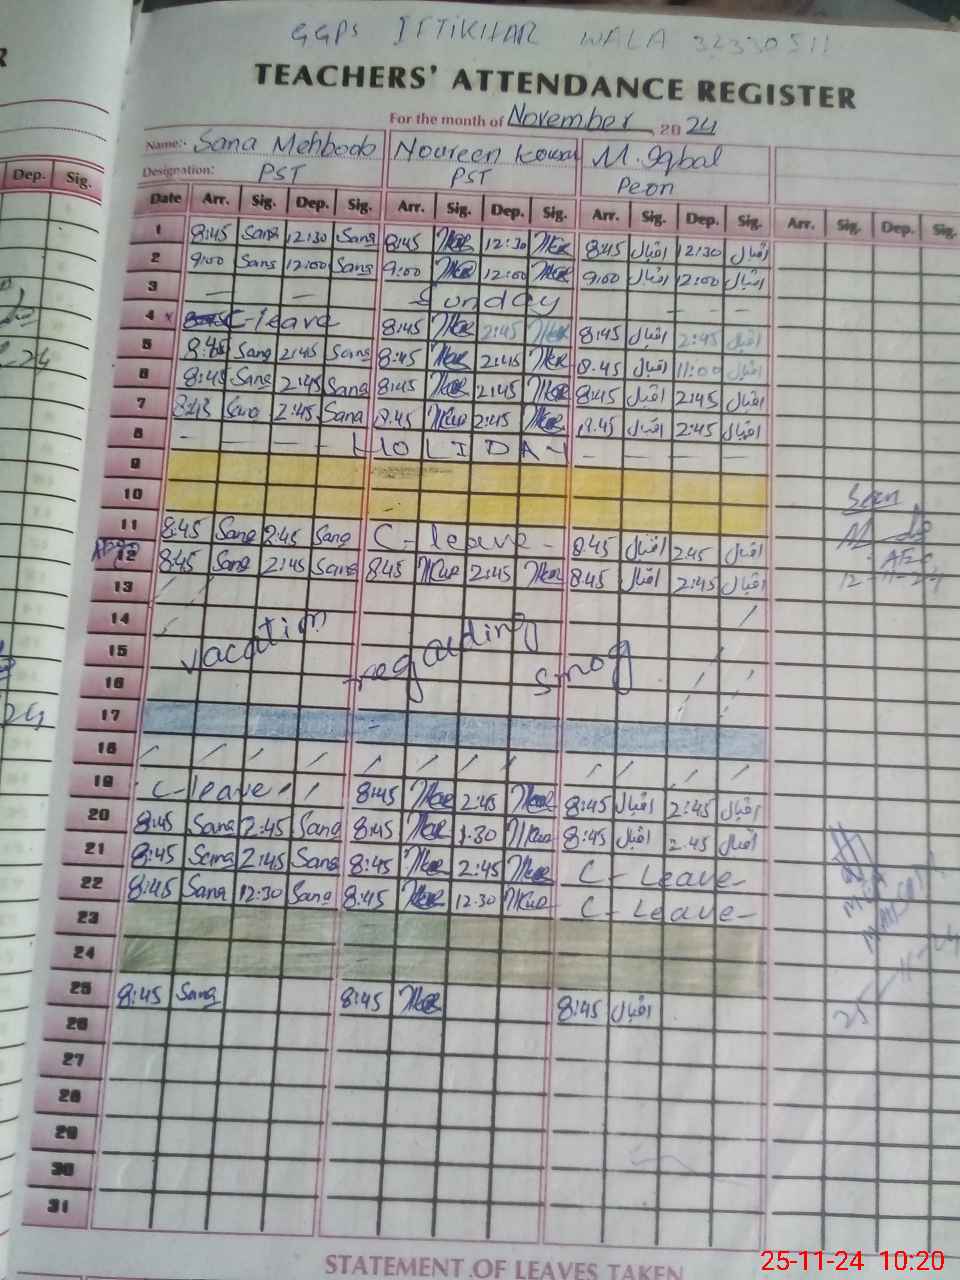 GGPS IFTIKHAR WALA 32330511
TEACHERS' ATTENDANCE REGISTER
For the month of November 2024
Name:- Sana Mehboob Noureen M. Iqbal
Designation: PST PST Peon
Dep. Sig.
Date Arr. Sig. Dep. Sig. Arr. Sig. Dep. Sig. Arr. Sig. Dep. Sig. Arr. Sig. Dep. Sig.
1 8:45 Sana 12:30 Sana 8:45 12:30 8:45 اقبال 12:30 اقبال
2 9:00 Sana 12:00 Sana 9:00 12:00 9:00 اقبال 12:00 اقبال
3 — — Sunday — — —
4 C-leave 8:45 2:45 8:45 اقبال 2:45 اقبال
5 8:45 Sana 2:45 Sana 8:45 2:45 8.45 اقبال 11:00 اقبال
6 8:45 Sana 2:45 Sana 8:45 2:45 8:45 اقبال 2:45 اقبال
7 8:45 Sana 2:45 Sana 8.45 2:45 8.45 اقبال 2:45 اقبال
8 — — — — HOLIDAY — — — —
9
10
Seen
11 8:45 Sana 2:45 Sana C-leave- 8:45 اقبال 2:45 اقبال
AEO
12 8:45 Sana 2:45 Sana 8:45 2:45 8:45 اقبال 2:45 اقبال
12-11-24
13
14
15 vacation regarding smog
16
17
18
19 C-leave 8:45 2:45 8:45 اقبال 2:45 اقبال
20 8:45 Sana 2:45 Sana 8:45 1.30 8:45 اقبال 2.45 اقبال
21 8:45 Sana 2:45 Sana 8:45 2:45 C-Leave-
22 8:45 Sana 12:30 Sana 8:45 12.30 C-Leave-
23
24
25 8:45 Sana 8:45 8:45 اقبال
25-11-24
26
27
28
29
30
31
STATEMENT OF LEAVES TAKEN
25-11-24 10:20